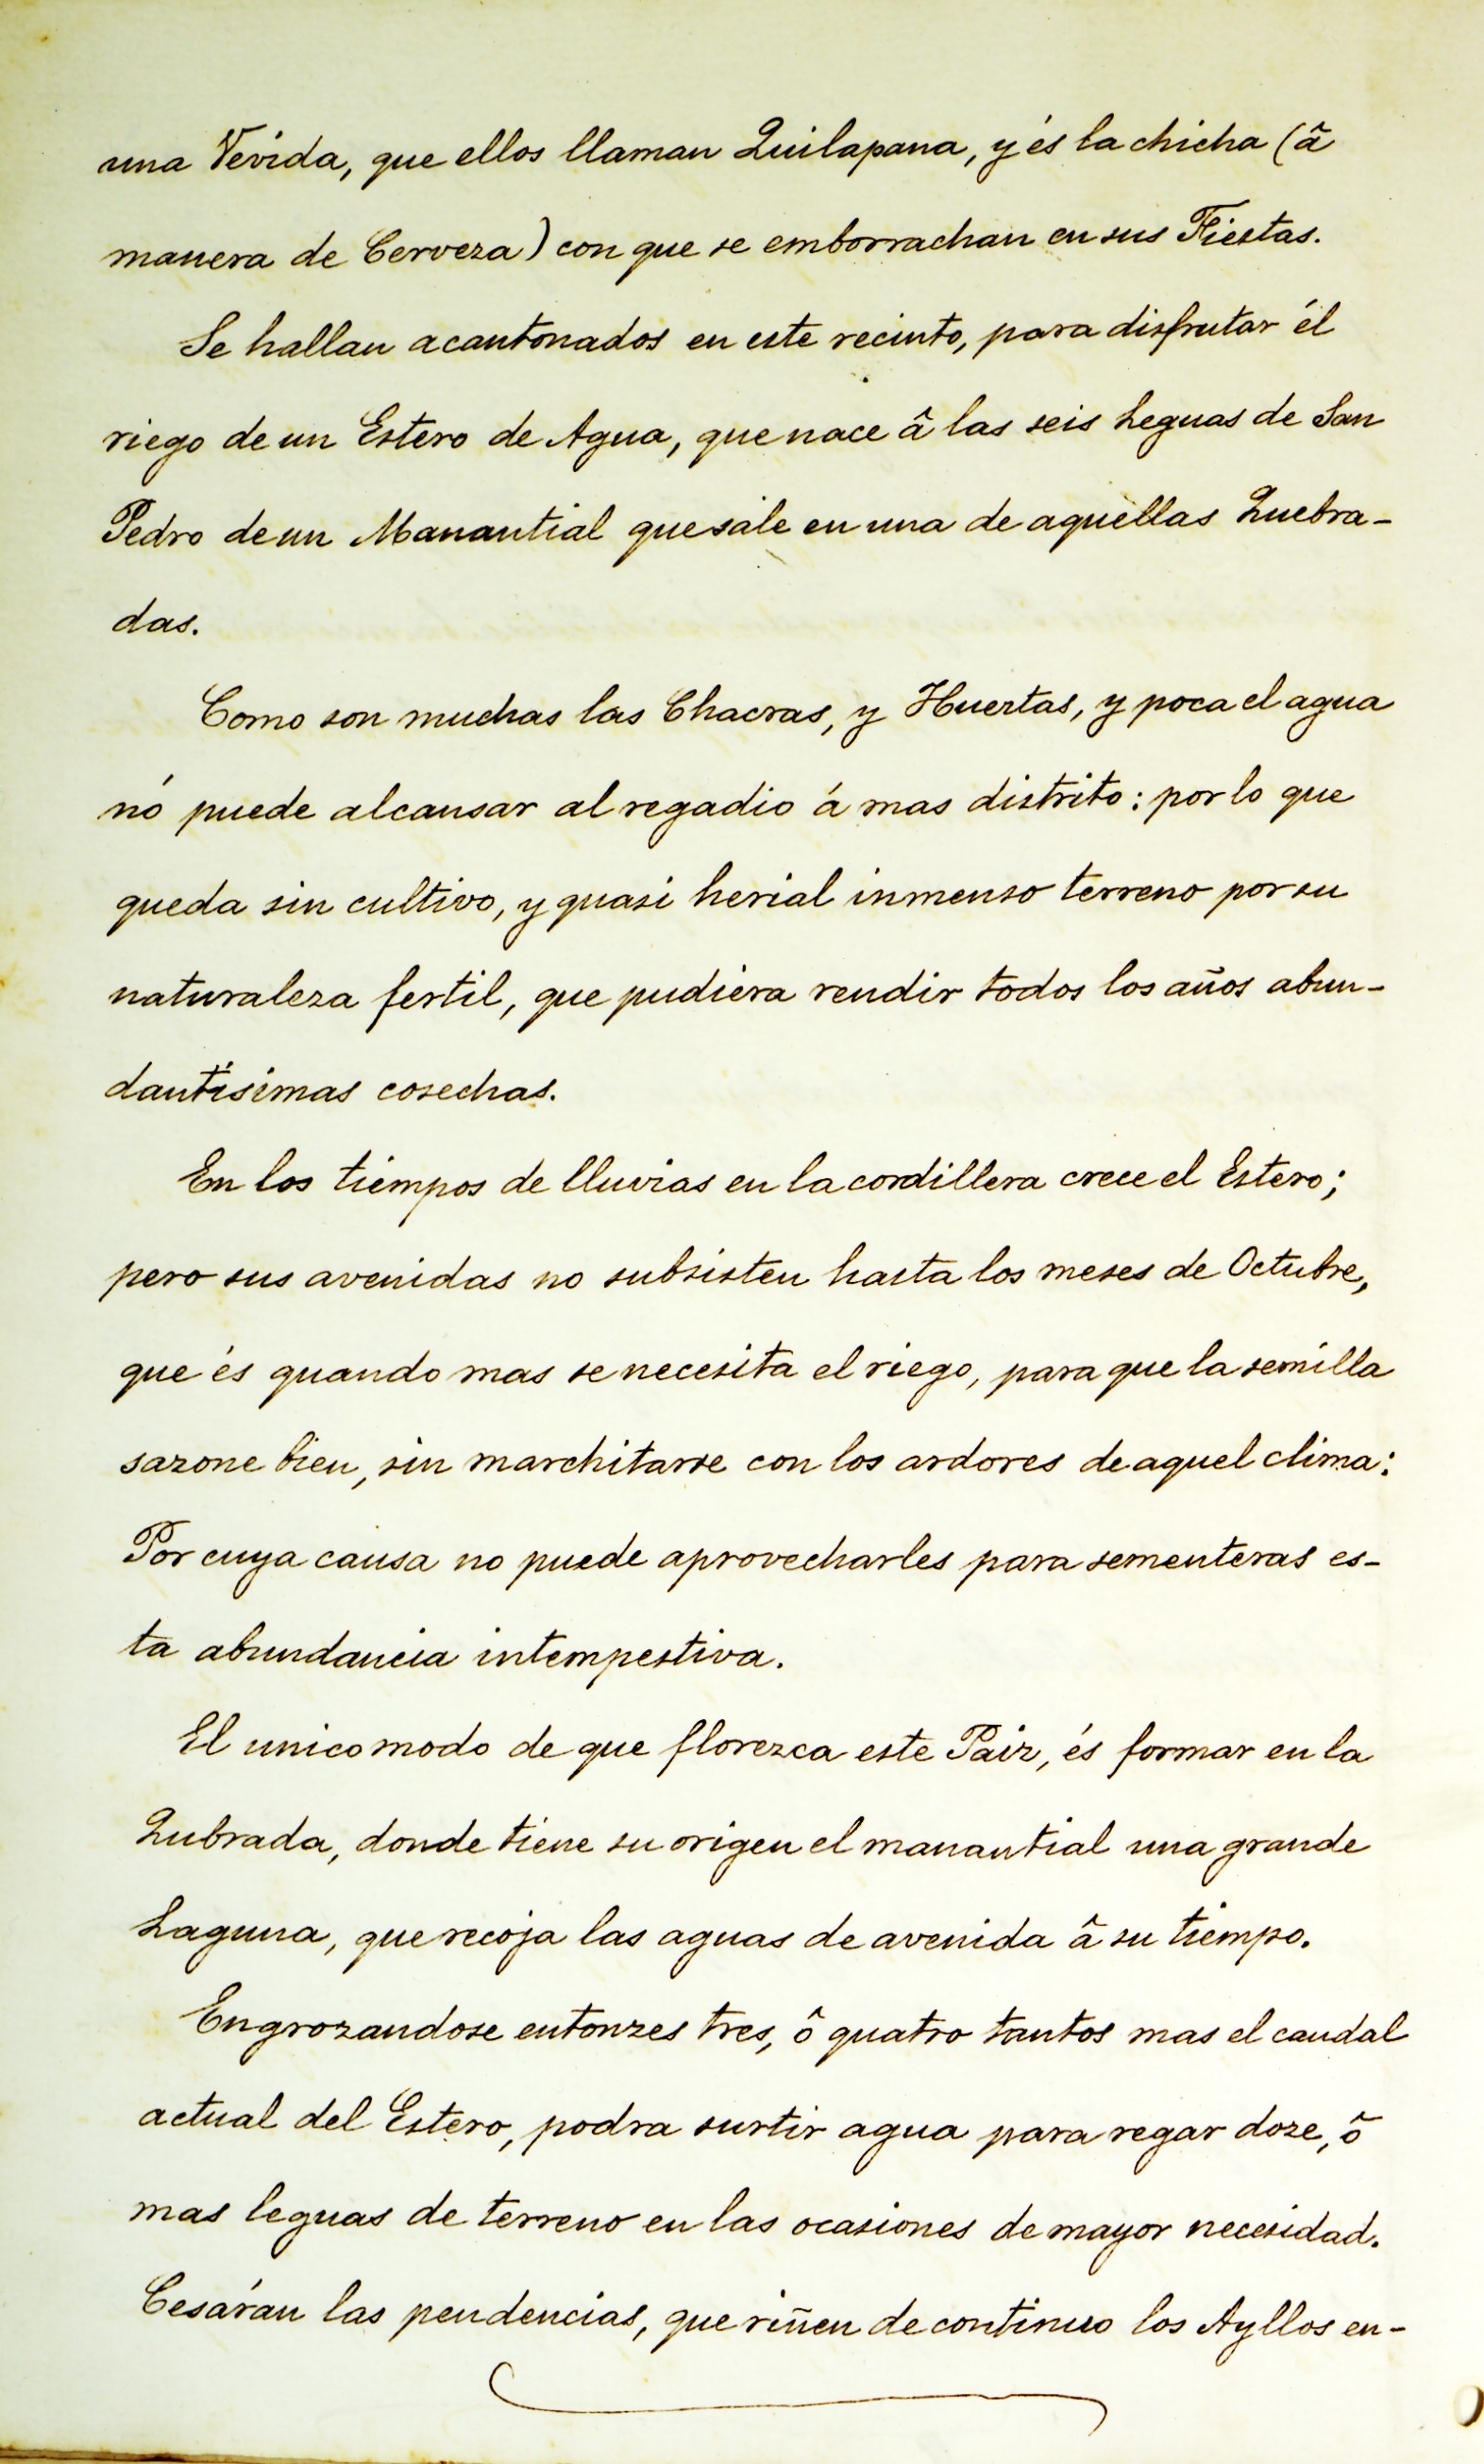 una Vevida, que ellos llaman Quilapana, y és la chicha (â
manera de Cerveza) con que se emborrachan en sus Fiestas.
Se hallan acantonados en este recinto, para disfrutar él
riego de un Estero de Agua, que nace â las seis Leguas de San
Pedro de un Manantial que sale en una de aquellas Quebra-
das.
Como son muchas las Chacras, y Huertas, y poca el agua
nó puede alcansar al regadio á mas distrito: por lo que
queda sin cultivo, y quasi herial inmenso terreno por su
naturaleza fertil, que pudiera rendir todos los años abun-
dantisimas cosechas.
En los tiempos de lluvias en la cordillera crece el Estero;
pero sus avenidas no subsisten hasta los meses de Octubre,
que és quando mas se necesita el riego, para que la semilla
sazone bien, sin marchitarse con los ardores de aquel clima:
Por cuya causa no puede aprovecharles para sementeras es-
ta abundancia intempestiva.
El unico modo de que florezca este Paiz, és formar en la
Qubrada, donde tiene su origen el manantial una grande
Laguna, que recoja las aguas de avenida â su tiempo.
Engrozandose entonzes tres, ô quatro tantos mas el caudal
actual del Estero, podra surtir agua para regar doze, ô
mas leguas de terreno en las ocasiones de mayor necesidad.
Cesarán las pendencias, que riñen de continuo los Ayllos en-